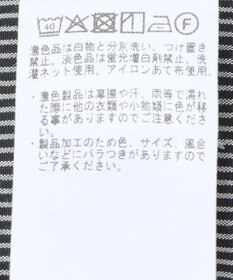 40 F
濃色品は白物と分別洗い。つけ置き
禁止。淡色品は蛍光増白剤禁止。洗
濯ネット使用。アイロンあて布使用。
・濃色製品は摩擦や汗、雨等で濡れ
た際に他の衣類や小物類に色が移
る事がありますのでご注意くださ
い。
・製品加工のため色、サイズ、風合
いなどにバラつきがありますのでご
了承ください。